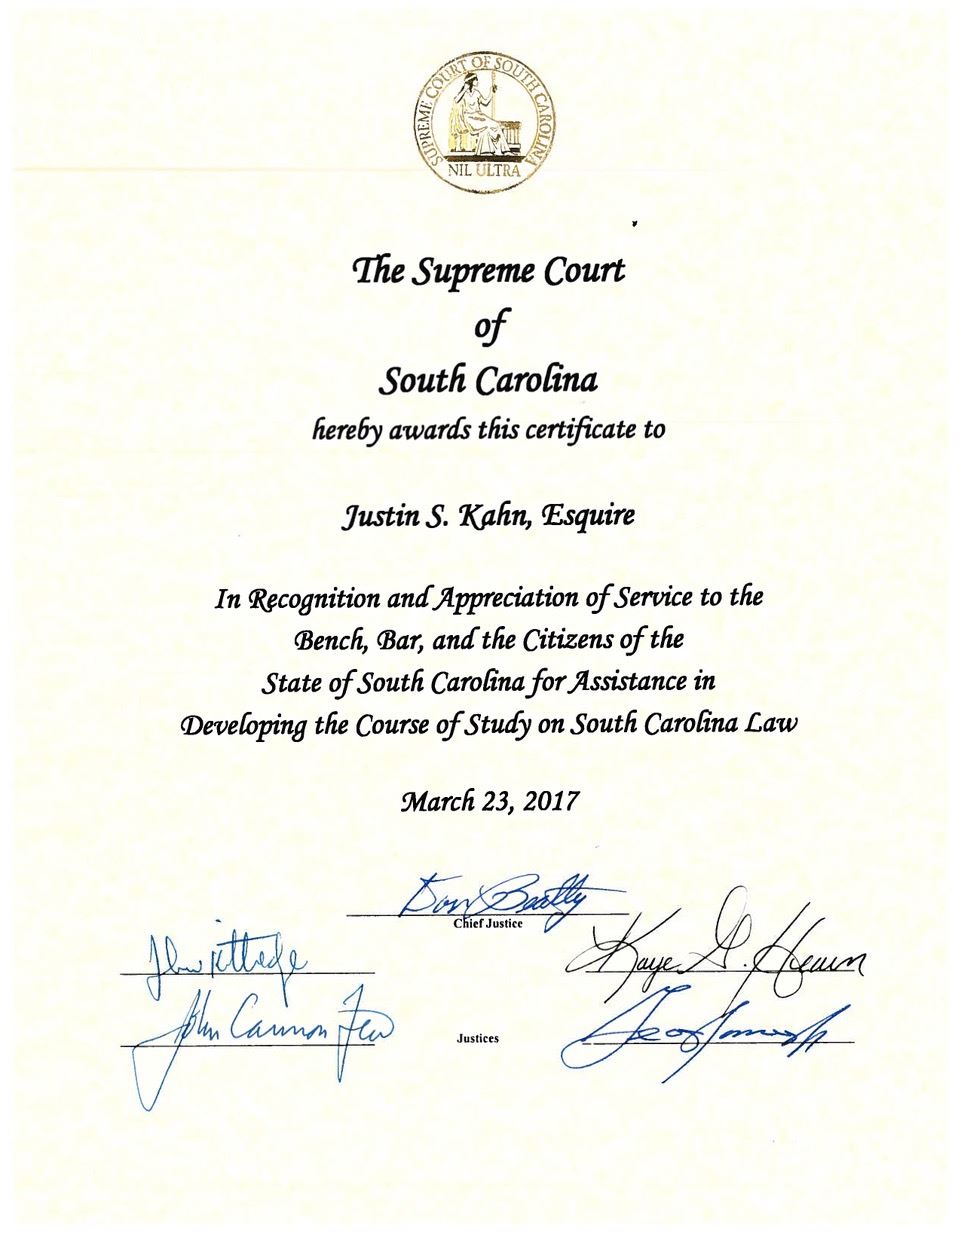 SUPREME COURT OF SOUTH CAROLINA
NIL ULTRA
The Supreme Court
of
South Carolina
hereby awards this certificate to
Justin S. Kahn, Esquire
In Recognition and Appreciation of Service to the
Bench, Bar, and the Citizens of the
State of South Carolina for Assistance in
Developing the Course of Study on South Carolina Law
March 23, 2017
Don Beatty
Chief Justice
Kaye G. Hearn
John Cannon Few
Justices